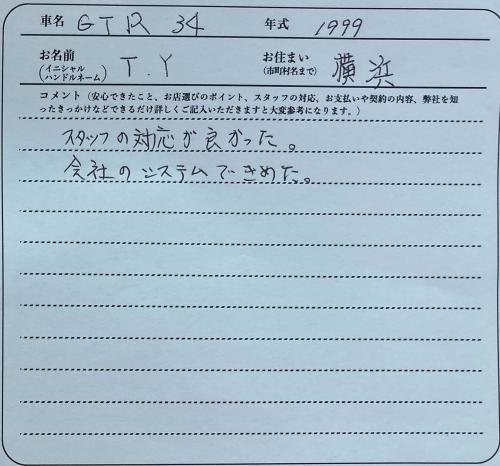 車名 GTR 34 年式 1999
お名前 (イニシャル ハンドルネーム) T.Y お住まい (市町村名まで)横浜
コメント（安心できたこと、お店選びのポイント、スタッフの対応、お支払いや契約の内容、弊社を知
ったきっかけなどできるだけ詳しくご記入いただきますと大変参考になります。）
スタッフの対応が良かった。
会社のシステムできめた。